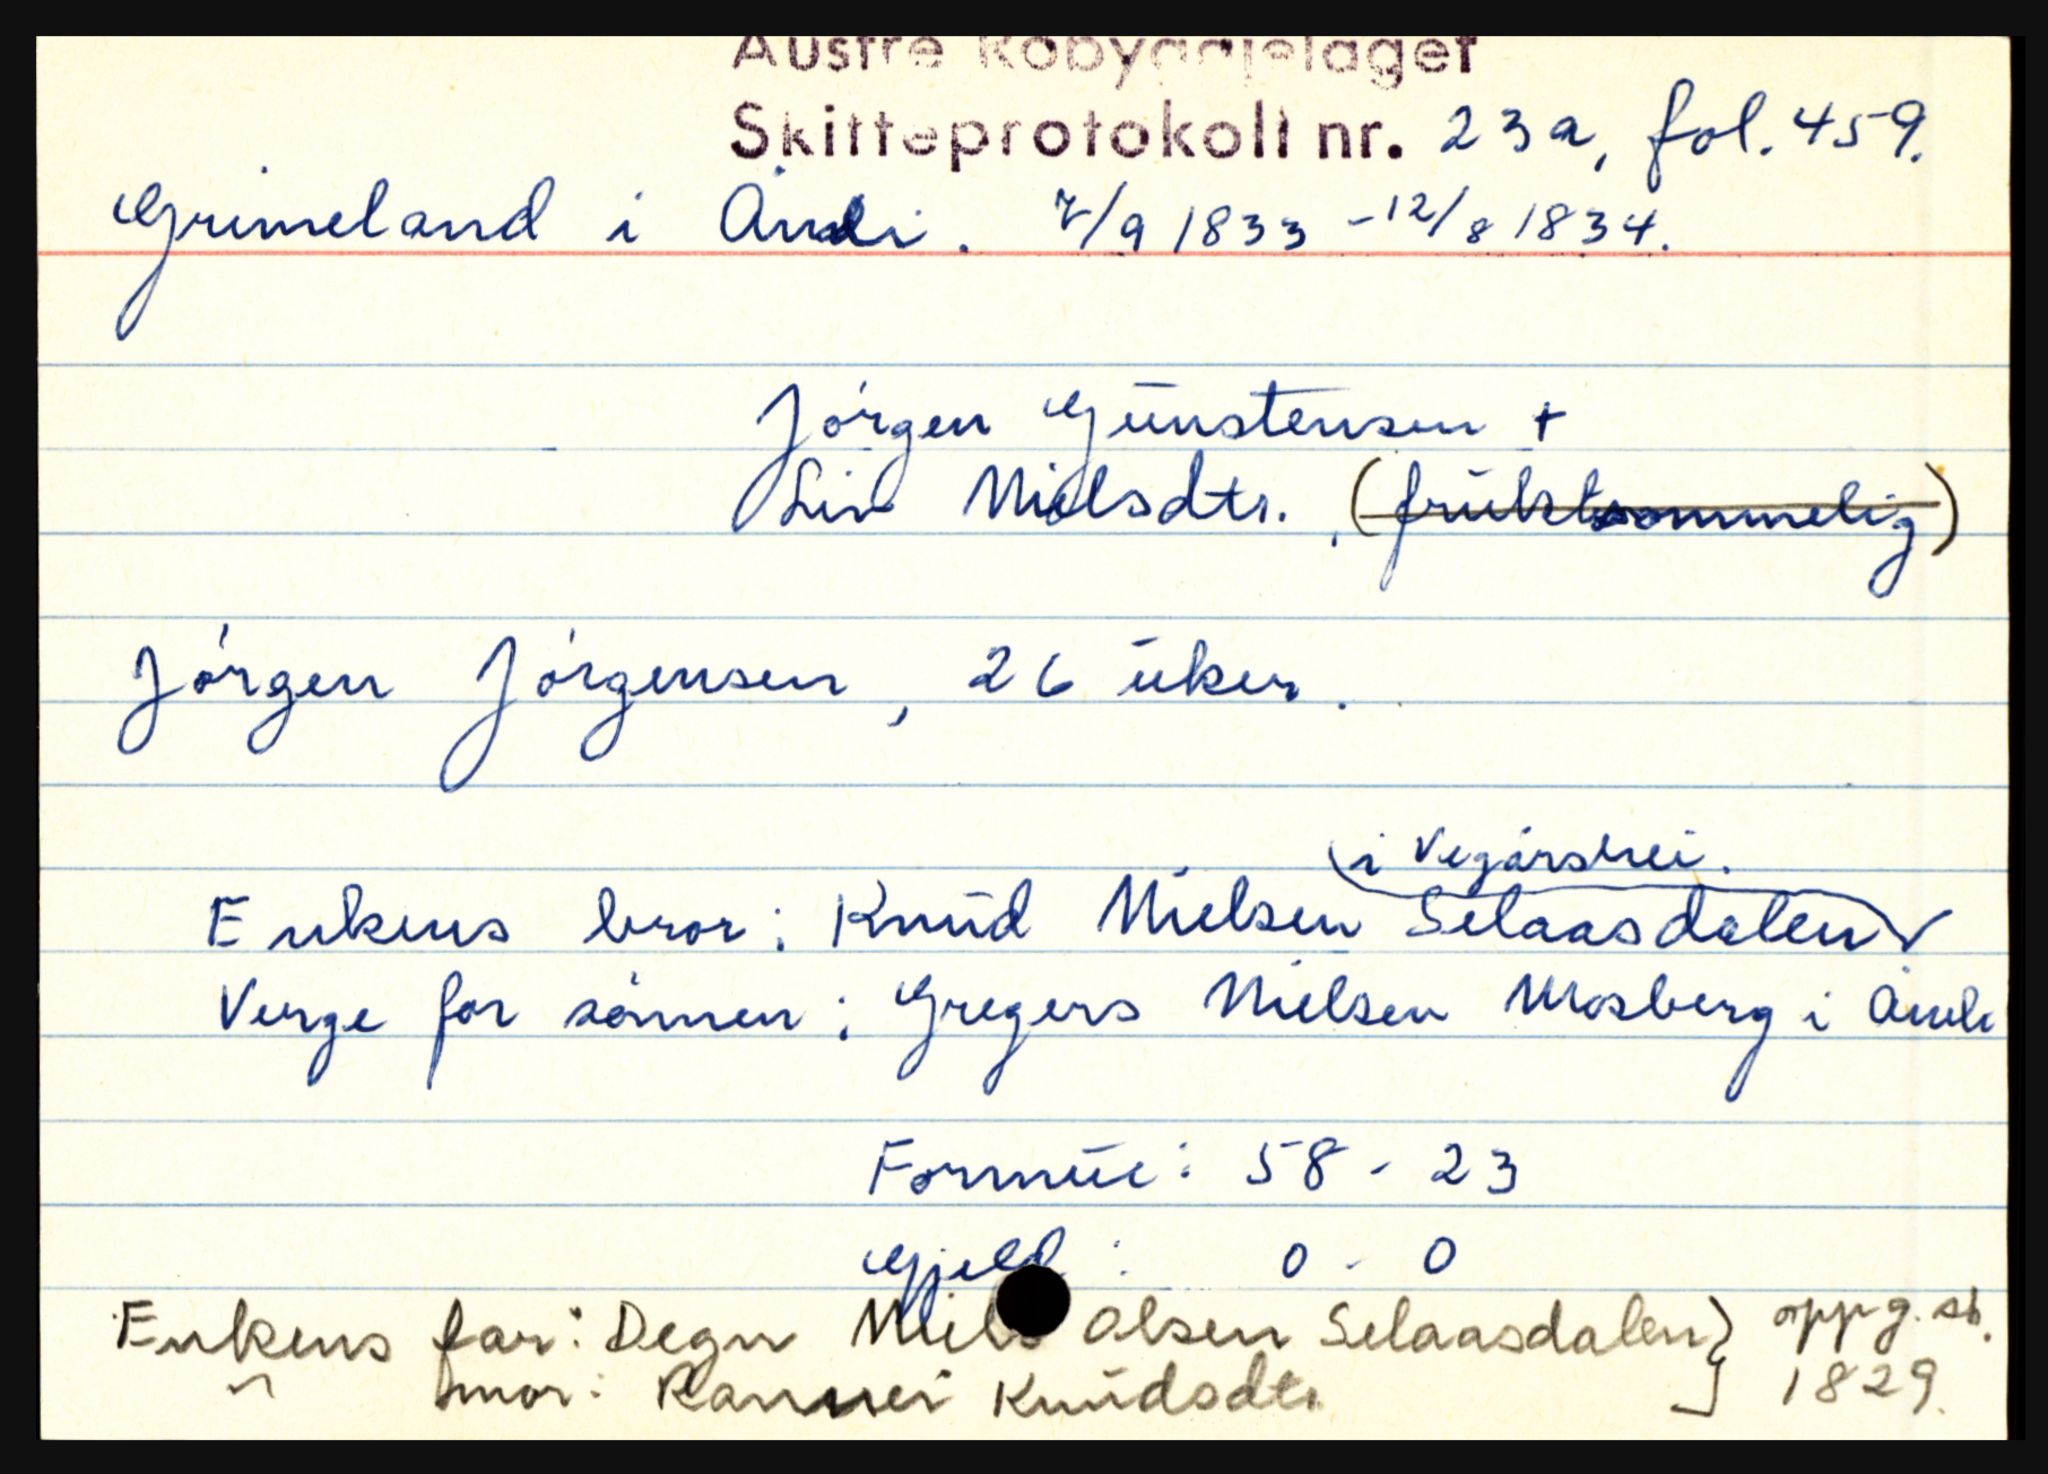 Austre Robyggjelaget
Skifteprotokoll nr. 23a, fol. 459.
Grimeland i Åmli. 7/9 1833 - 12/8 1834.
Jórgen Gunstensen +
Liv Nielsdtr. (fruktsommelig)
Jórgen Jórgensen, 26 uker.
i Vegårshei.
Enkens bror: Knud Nielsen Selaasdalen
Verge for sónnen: Gregers Nielsen Mosberg i Åmli
Formue: 58 - 23
Gjeld: 0 - 0
Enkens far: Degn Niels Olsen Selaasdalen } oppg. sk.
" mor: Rannei Knudsdtr. } 1829.